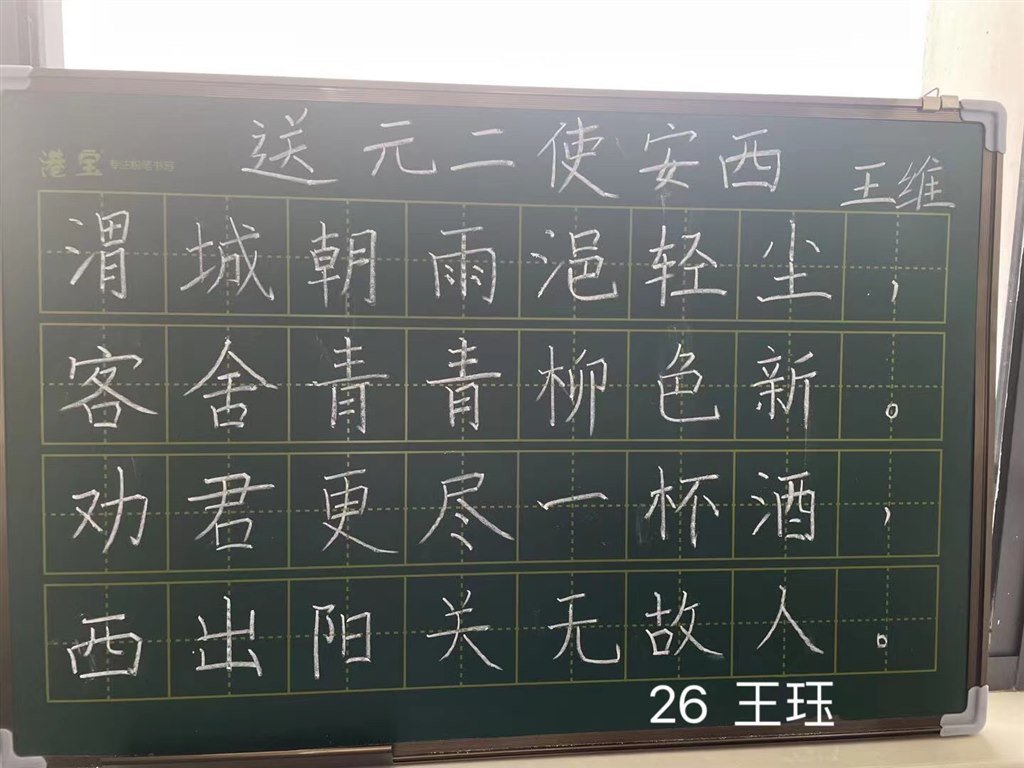 送元二使安西
王维
港宝 专注粉笔书写
渭城朝雨浥轻尘，
客舍青青柳色新。
劝君更尽一杯酒，
西出阳关无故人。
26 王珏